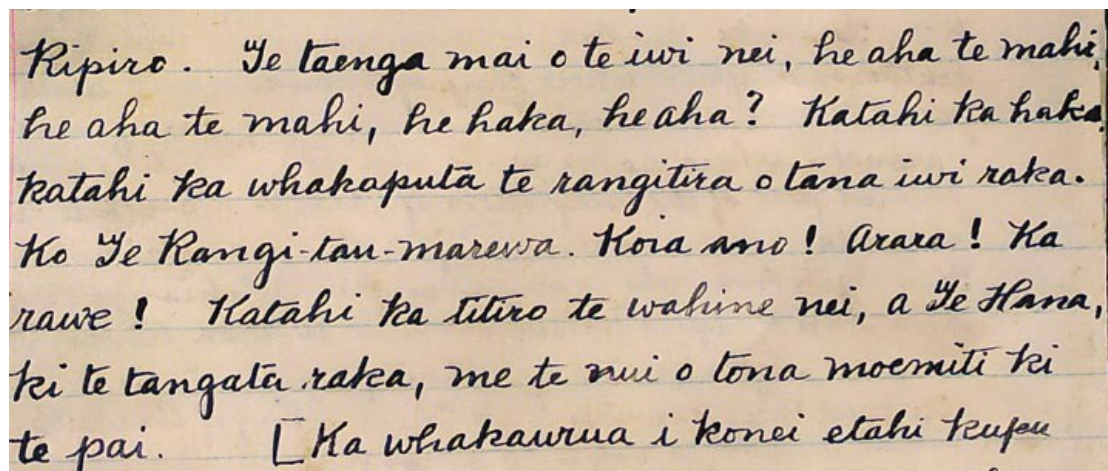 Ripiro. Te taenga mai o te iwi nei, he aha te mahi,
he aha te mahi, he haka, he aha? Katahi ka haka,
katahi ka whakaputa te rangitira o tana iwi raka.
Ko Te Rangi-tau-marewa. Koia ano! Arara! Ka
rawe! Katahi ka titiro te wahine nei, a Te Hana,
ki te tangata raka, me te nui o tona moemiti ki
te pai. [Ka whakaurua i konei etahi kupu